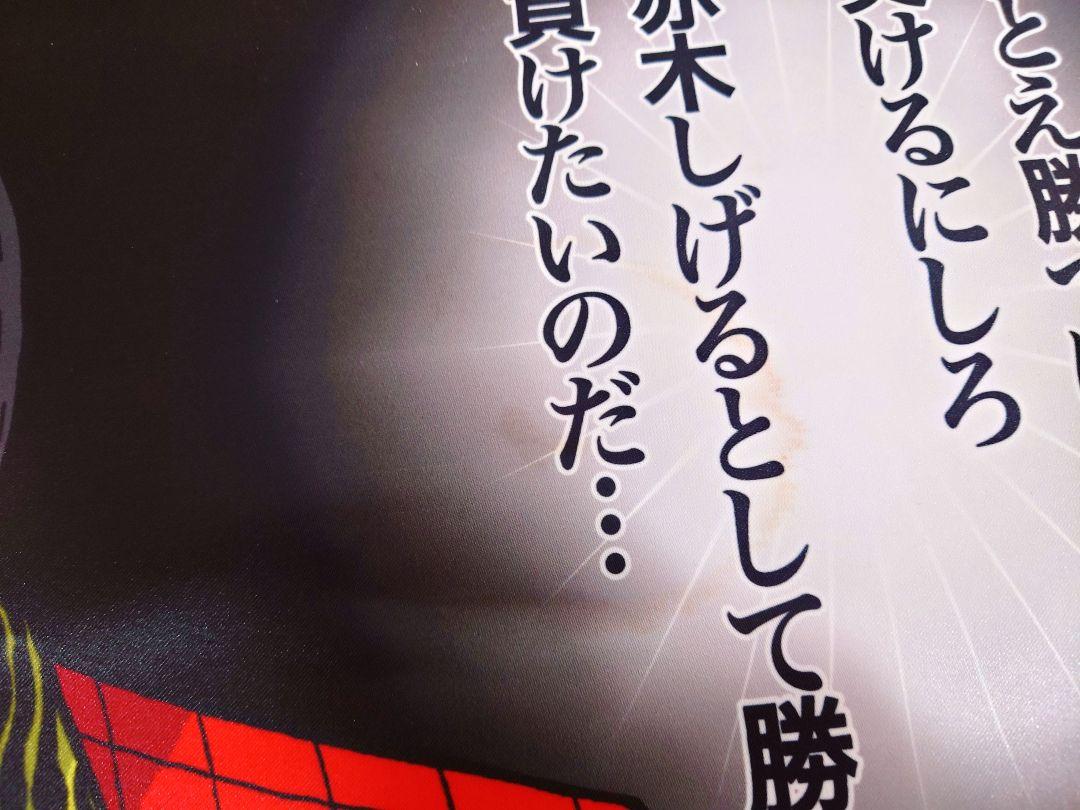 とえ勝てい
負けるにしろ
赤木しげるとして勝
負けたいのだ…